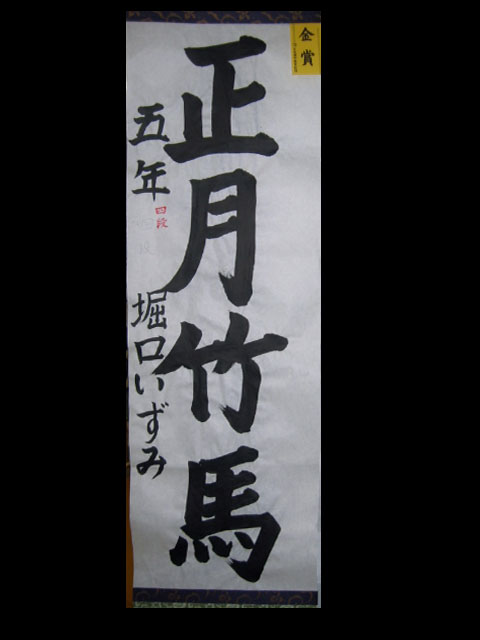 金賞
正月竹馬
五年 堀口いずみ
四段